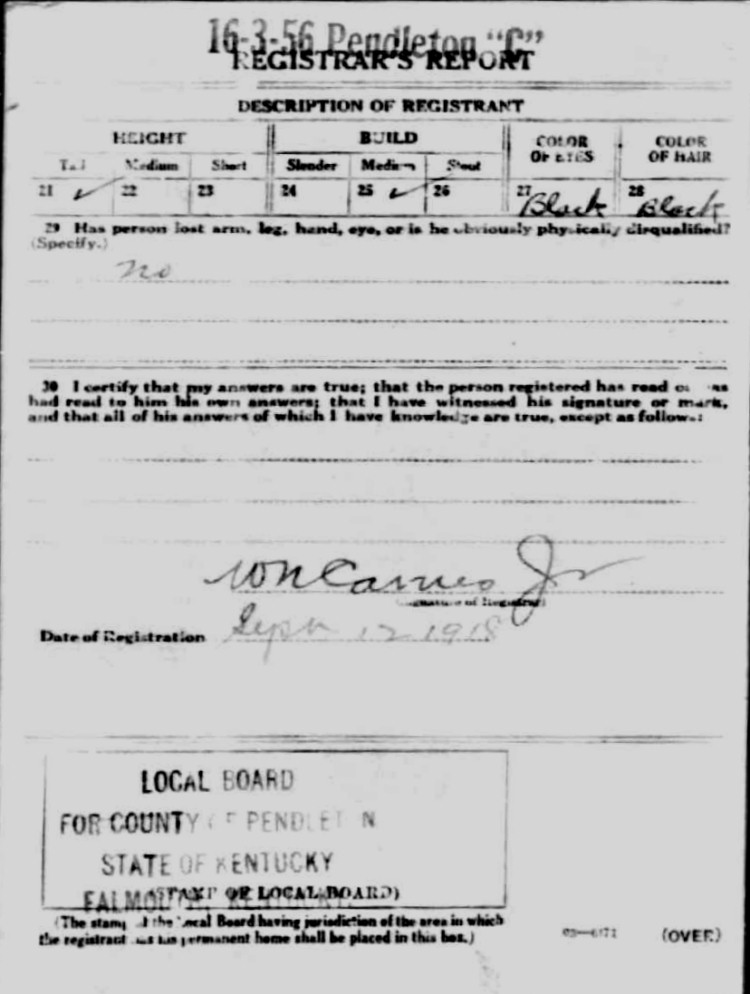 16-3-56 Pendleton "C"
REGISTRAR'S REPORT
DESCRIPTION OF REGISTRANT
HEIGHT BUILD COLOR OF EYES COLOR OF HAIR
Tall Medium Short Slender Medium Stout
21 ✓ 22 23 24 25 ✓ 26 27 Black 28 Black
29 Has person lost arm, leg, hand, eye, or is he obviously physically disqualified?
(Specify.)
no
30 I certify that my answers are true; that the person registered has read or has
had read to him his own answers; that I have witnessed his signature or mark,
and that all of his answers of which I have knowledge are true, except as follows:
Jr
(Signature of Registrar)
Date of Registration Sept 12 1918
LOCAL BOARD
FOR COUNTY OF PENDLETON
STATE OF KENTUCKY
FALMOUTH, KENTUCKY
(STAMP OF LOCAL BOARD)
(The stamp of the Local Board having jurisdiction of the area in which
the registrant has his permanent home shall be placed in this box.)
(OVER)